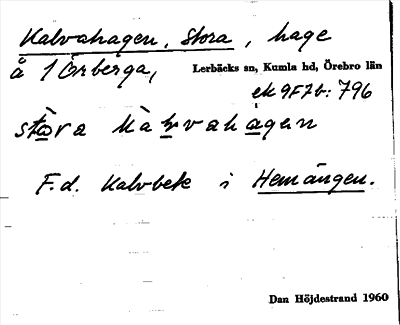 Kalvahagen, Stora, hage
å 1 Örberga, Lerbäcks sn, Kumla hd, Örebro län
ek 9F7b: 796
stòra kàlvahagen
F.d. kalvbete i Hemängen.
Dan Höjdestrand 1960